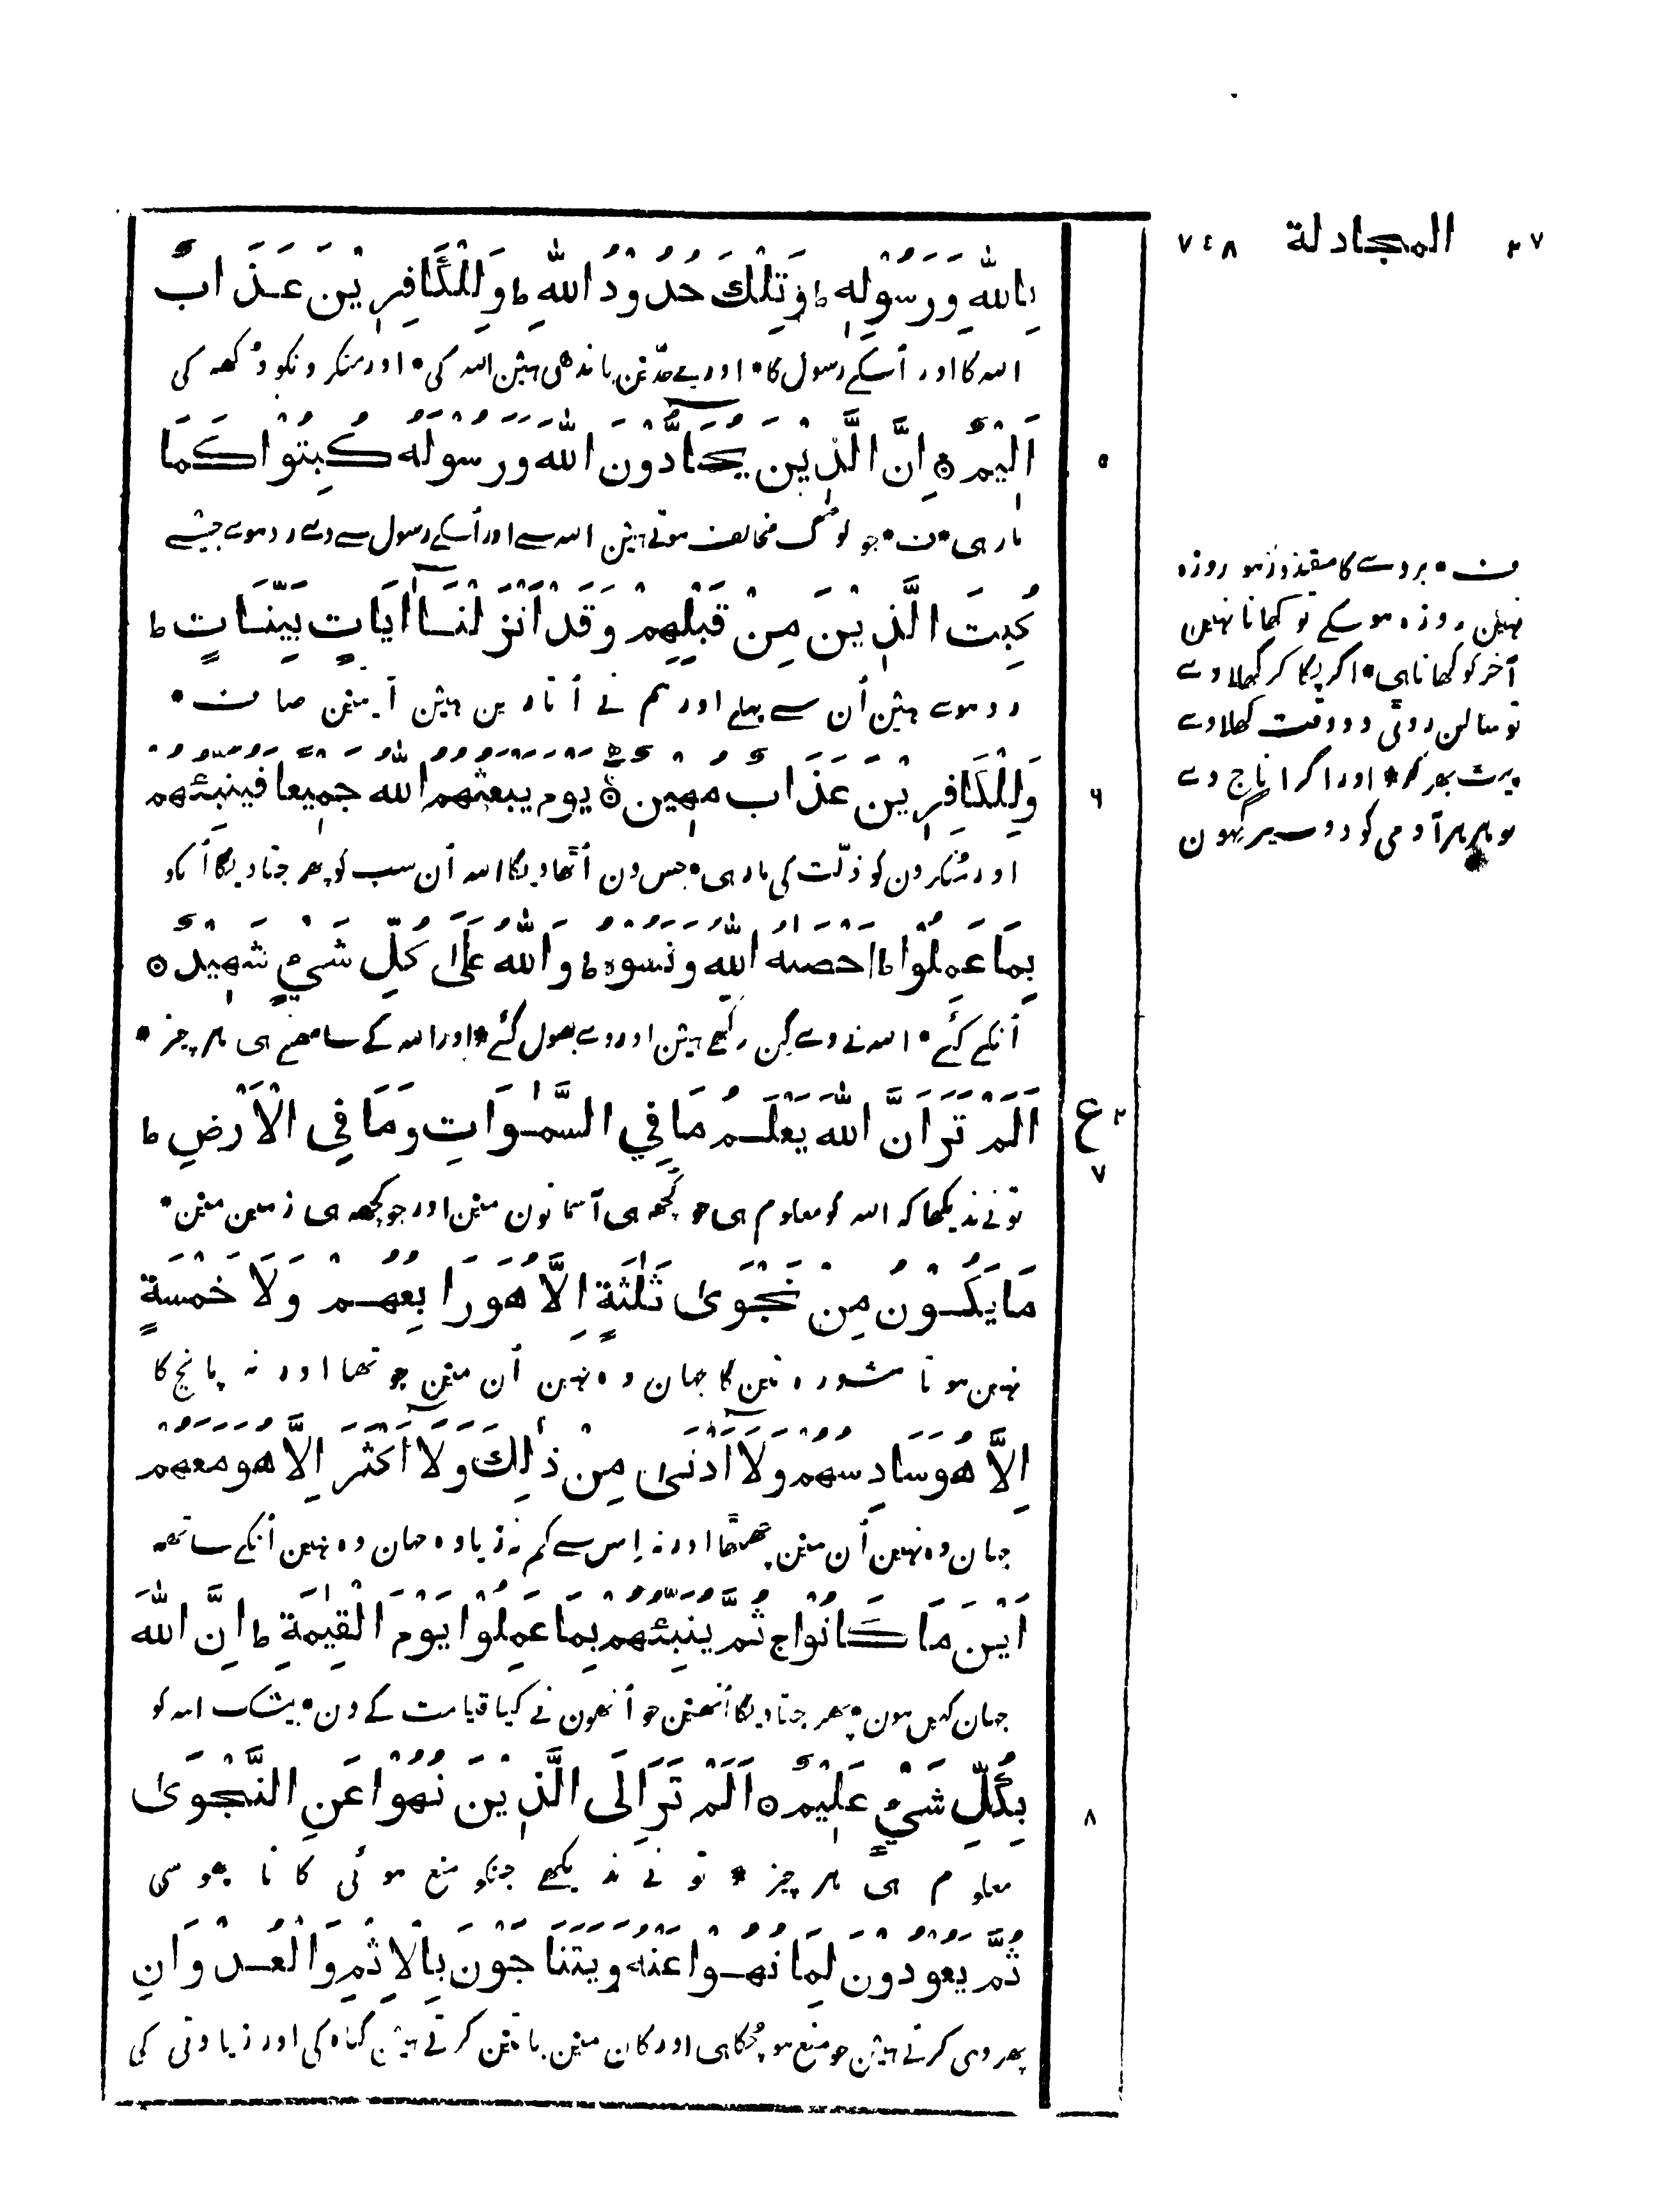 ٢٧ المجادلة ٧٤٨
بِاللّٰهِ وَرَسُوْلِهٖ ؕ وَتِلْكَ حُدُوْدُ اللّٰهِ ؕ وَلِلْكَافِرِيْنَ عَذَابٌ
الله کا اور اُسکے رسول کا * اور یے حدّین باندھی ہیٖن الله کی * اور منکرونکو دُکھہ کی
٥
اَلِيْمٌ ۞ اِنَّ الَّذِيْنَ يُحَآدُّوْنَ اللّٰهَ وَرَسُوْلَهٗ كُبِتُوْا كَمَا
مار ہی * ف * جو لوگ مخالف ہوتے ہیٖن الله سے اور اُسکے رسول سے وے رد ہوے جیسے
كُبِتَ الَّذِيْنَ مِنْ قَبْلِهِمْ وَقَدْ اَنْزَلْنَآ اٰيَاتٍ بَيِّنَاتٍ ؕ
رد ہوے ہیٖن اُن سے پہلے اور ہم نے اُتارین ہیٖن آیتین صاف *
٦
وَلِلْكَافِرِيْنَ عَذَابٌ مُهِيْنٌ ۞ يَوْمَ يَبْعَثُهُمُ اللّٰهُ جَمِيْعًا فَيُنَبِّئُهُمْ
اور منکرون کو ذلّت کی مار ہی * جس دن اُٹھاویگا الله اُن سب کو پھر جتاویگا اُنکو
بِمَا عَمِلُوْا ؕ اَحْصٰهُ اللّٰهُ وَنَسُوْهُ ؕ وَاللّٰهُ عَلٰى كُلِّ شَيْءٍ شَهِيْدٌ ۞
اُنکے کئے * الله نے وے گِن رکھے ہیٖن اور وے بھول گئے * اور الله کے سامھنے ہی ہر چیز *
ع ٢
٧
اَلَمْ تَرَ اَنَّ اللّٰهَ يَعْلَمُ مَا فِي السَّمٰوَاتِ وَمَا فِي الْاَرْضِ ؕ
تو نے ندیکھا کہ الله کو معلوم ہی جو کُچھہ ہی آسمانون مین اور جو کچھہ ہی زمین مین *
مَا يَكُوْنُ مِنْ نَجْوٰى ثَلٰثَةٍ اِلَّا هُوَ رَابِعُهُمْ وَلَا خَمْسَةٍ
نہین ہوتا مشورہ تین کا جہان وہ نہین اُن مین چوتھا اور نہ پانچ کا
اِلَّا هُوَ سَادِسُهُمْ وَلَآ اَدْنٰى مِنْ ذٰلِكَ وَلَآ اَكْثَرَ اِلَّا هُوَ مَعَهُمْ
جہان وہ نہین اُن مین چھٹھا اور نہ اِس سے کم نہ زیادہ جہان وہ نہین اُنکے ساتھہ
اَيْنَ مَا كَانُوْا ج ثُمَّ يُنَبِّئُهُمْ بِمَا عَمِلُوْا يَوْمَ الْقِيٰمَةِ ؕ اِنَّ اللّٰهَ
جہان کہین ہون * پھر جتاویگا اُنھین جو اُنھون نے کیا قیامت کے دن * بیشک الله کو
٨
بِكُلِّ شَيْءٍ عَلِيْمٌ ۞ اَلَمْ تَرَ اِلَى الَّذِيْنَ نُهُوْا عَنِ النَّجْوٰى
معلوم ہی ہر چیز * تو نے ندیکھے جنکو منع ہوئی کانا پھوسی
ثُمَّ يَعُوْدُوْنَ لِمَا نُهُوْا عَنْهُ وَيَتَنَاجَوْنَ بِالْاِثْمِ وَالْعُدْوَانِ
پھر وہی کرتے ہیٖن جو منع ہو چُکا ہی اور کان مین باتین کرتے ہیٖن گناہ کی اور زیادتی کی
ف * بردے کا مقدور نہو روزہ
نہین روزہ ہو سکے تو کھانا نہین
آخر کو کھانا ہی * اگر پکا کر کھلاوے
تو سالن روٹی دو وقت کھلاوے
پیٹ بھر کر * اور اگر اناج دے
تو ہر ہر آدمی کو دو سیر گیہون